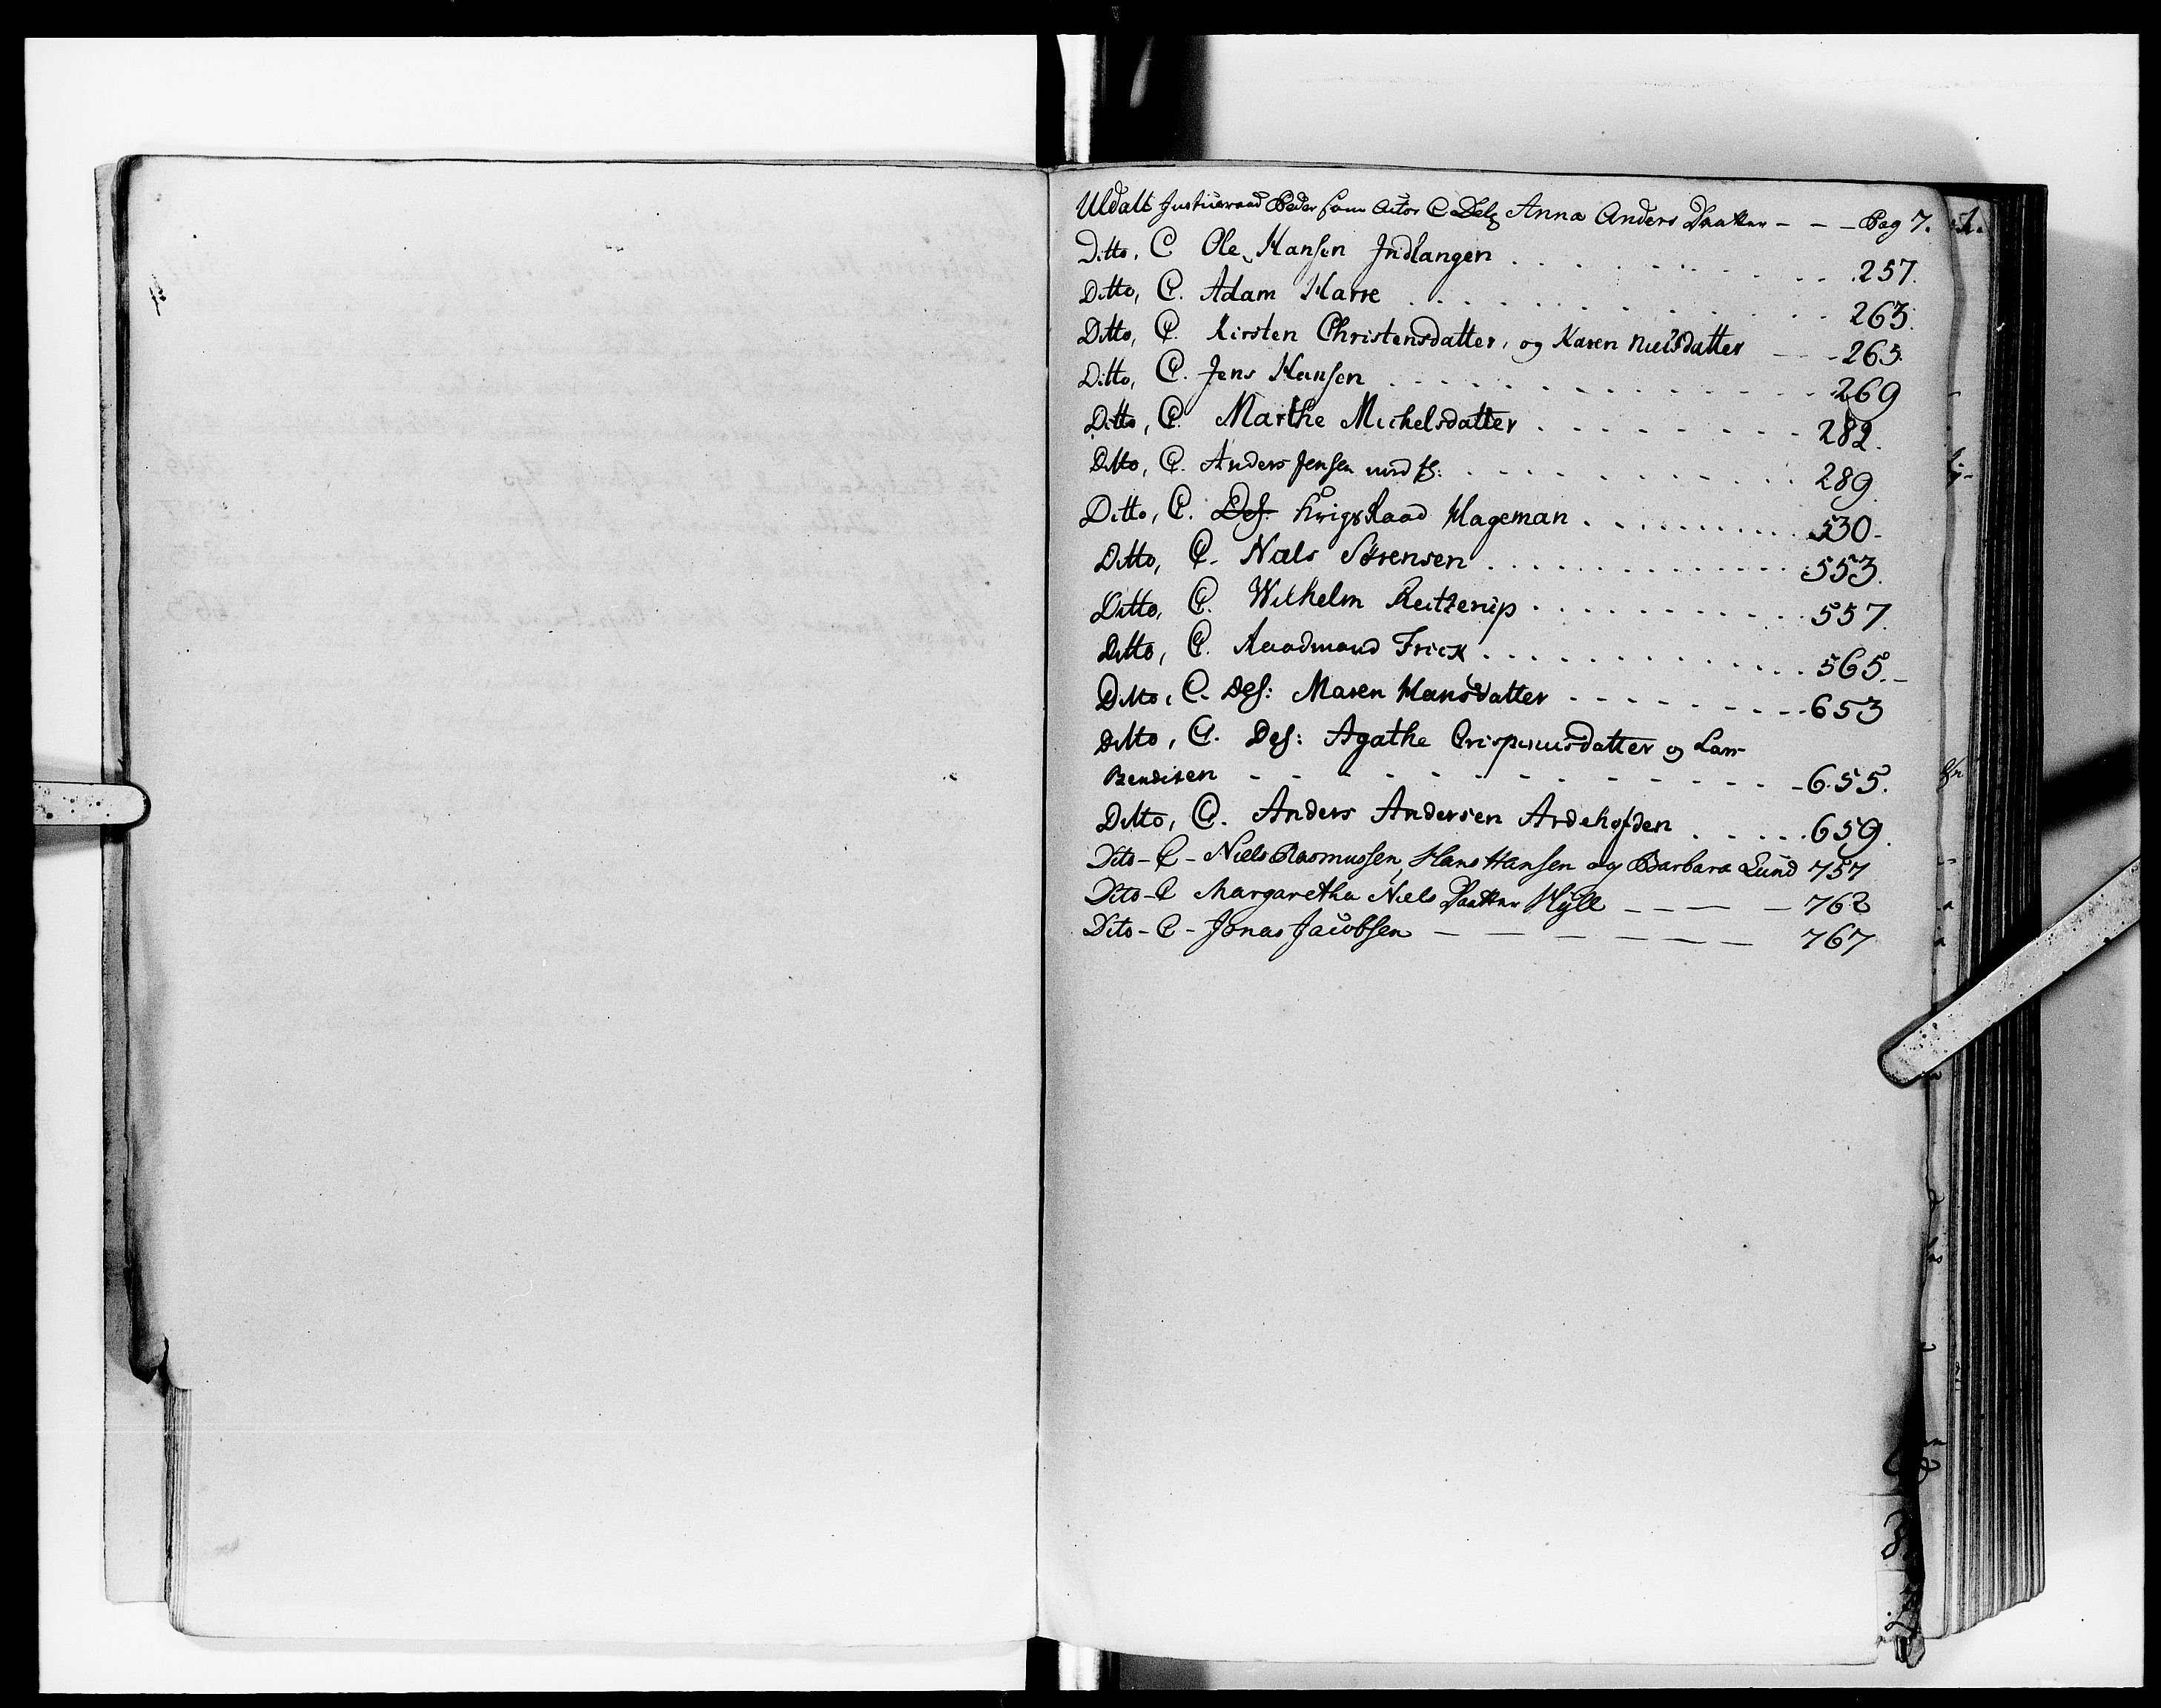 Uldall Justiceraad Beder som Actor C Delq Anna Anders Daatter - - - Pag 7.
Ditto, C Ole Hansen Indlangen . . . . . . . 257.
Ditto, C. Adam Harre . . . . . . . 263.
Ditto, C. Kirsten Christensdatter, og Karen Nielsdatter - - - 265.
Ditto, C. Jens Hansen . . . . . . . 269
Ditto, C. Marthe Michelsdatter . . . . . . . 282.
Ditto, C. Anders Jensen . . . . . . . 289.
Ditto, C. Def: KrigsRaad Hageman . . . . . . . 530-
Ditto, C. Niels Sørensen . . . . . . . 553.
Ditto, C. Wilhelm . . . . . . . 557.
Ditto, C. Raadmand Frick . . . . . . . 565.-
Ditto, C. Def: Maren Hansdatter - - - - - - - 653
Ditto, C. Def: Agathe Crispinusdatter og Lars
Bendixen - - - - - - - 655.
Ditto, C. Anders Andersen Ardehofden . . . . . 659.
Dito - C - Niels Rasmussen, Hans Hansen og Barbara Lund 757
Dito - C Margaretha Niels Daatter Hyll - - - - 762
Dito - C - Jonas Jacobsen - - - - - - - 767